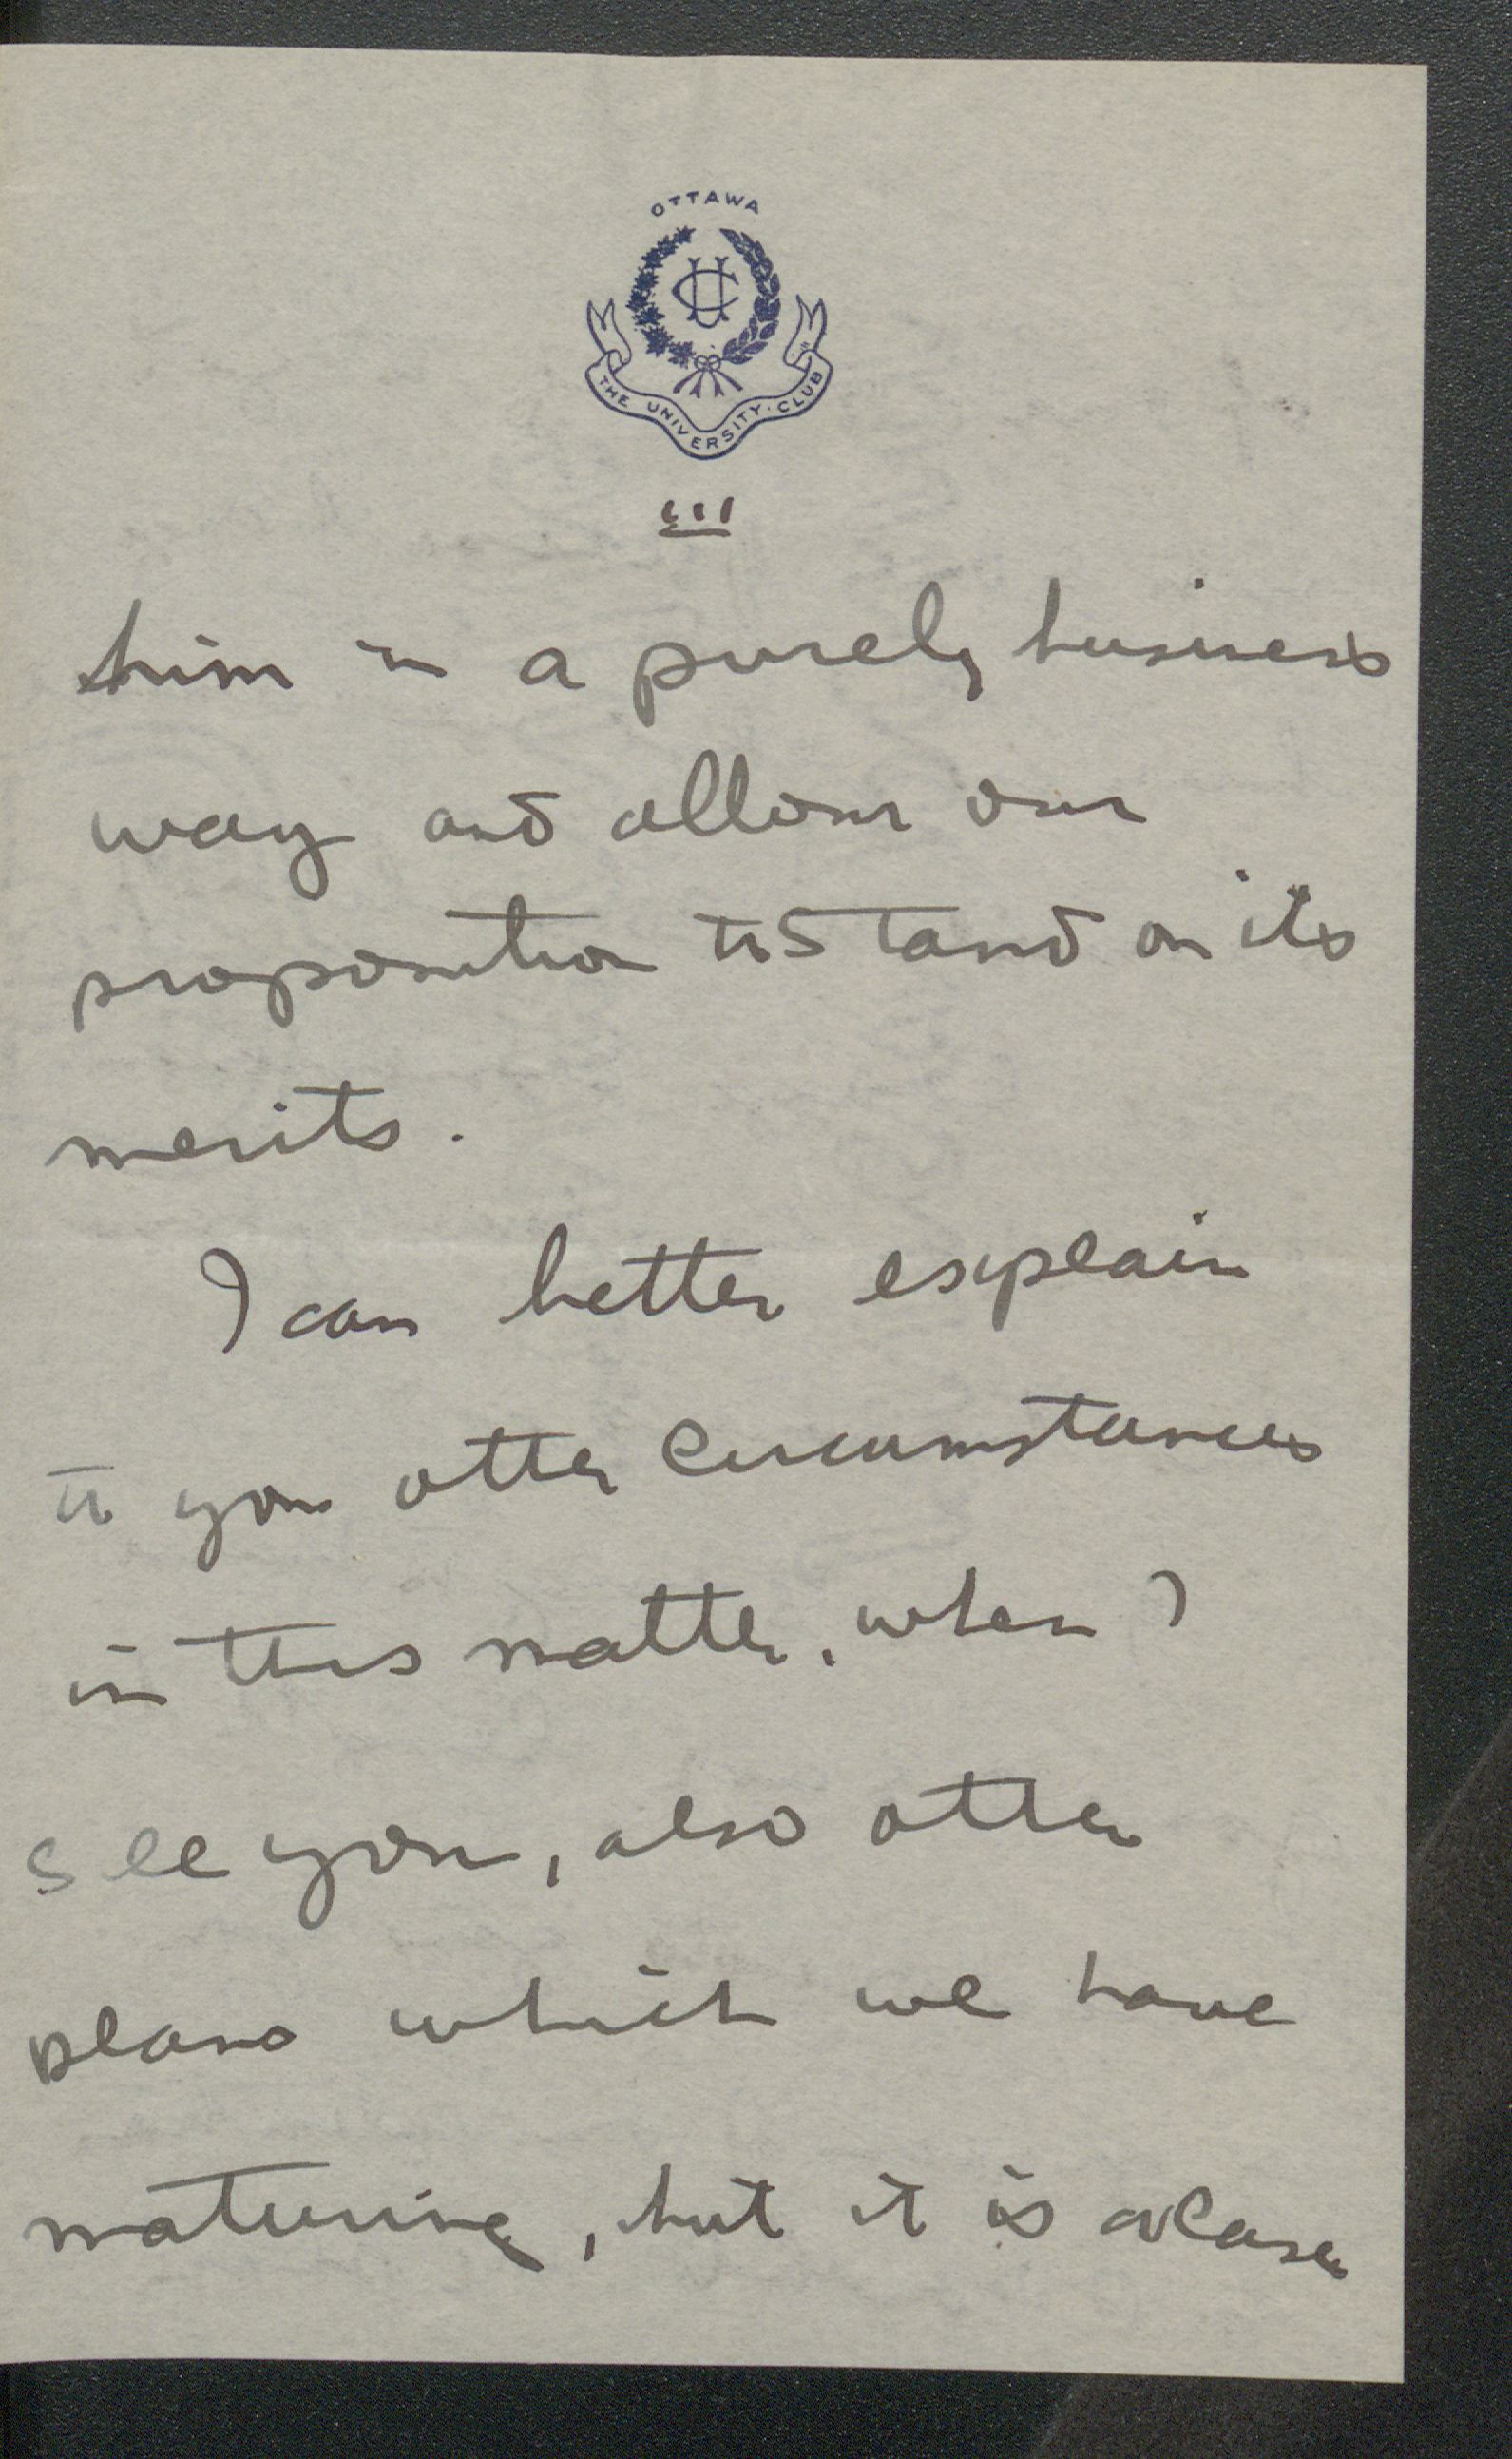 OTTAWA
UC
THE UNIVERSITY CLUB
III
him in a purely business
way and allow our
proposition to stand on its
merits.
I can better explain
to you other circumstances
in this matter, when I
see you, also other
plans which we have
maturing, but it is